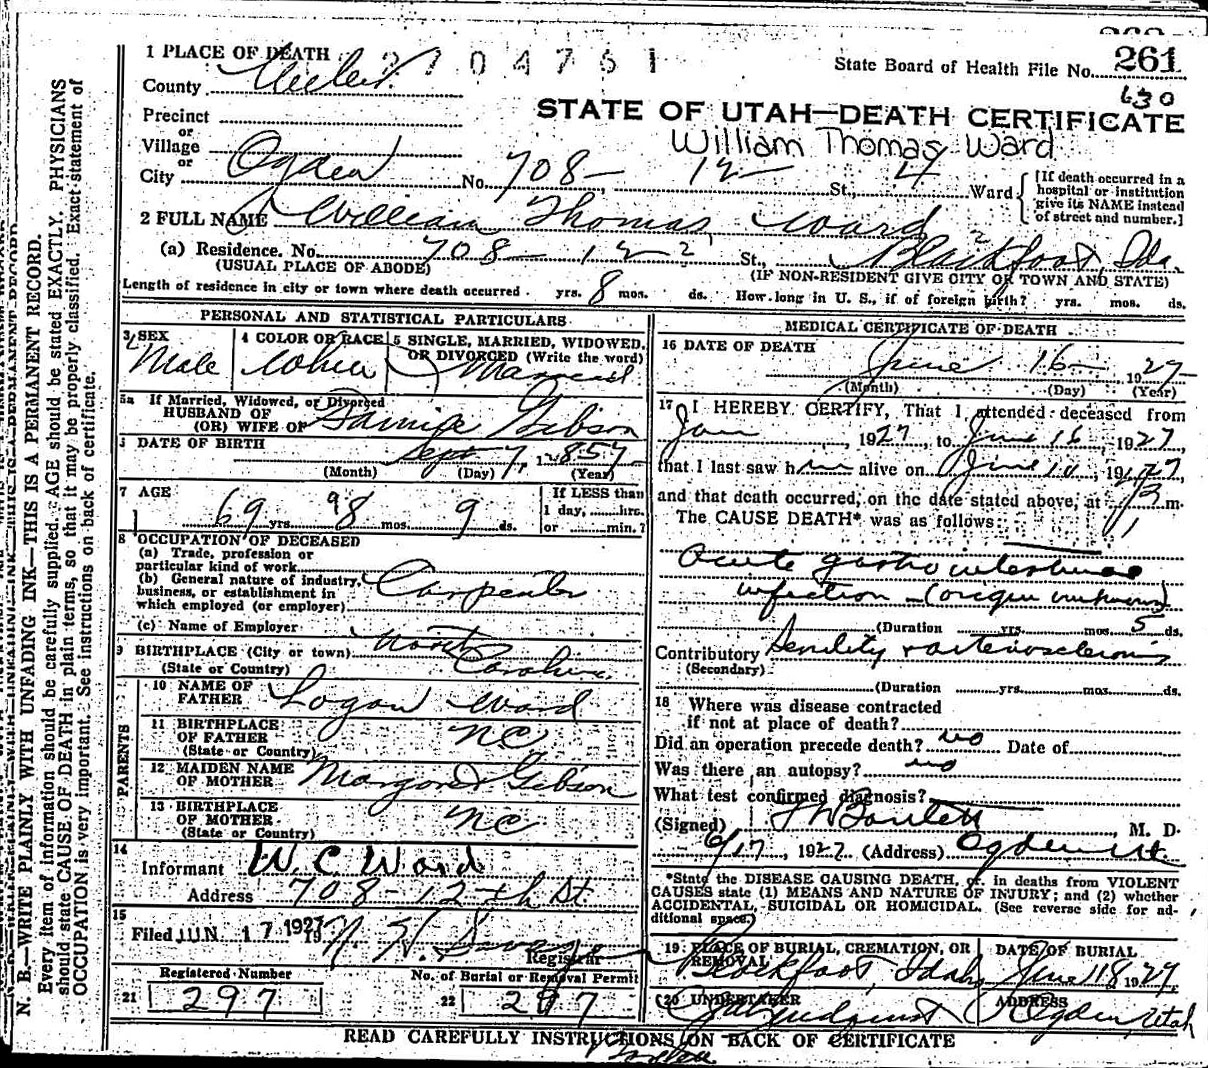 261
1 PLACE OF DEATH 2704761
State Board of Health File No. 261
County Weber
630
STATE OF UTAH—DEATH CERTIFICATE
Precinct
or
William Thomas Ward
Village
or
City Ogden No. 708 - 12 St., 4 Ward
[If death occurred in a
hospital or institution
give its NAME instead
of street and number.]
2 FULL NAME William Thomas Ward
(a) Residence. No. 708 - 12 St., Blackfoot, Ida.
(USUAL PLACE OF ABODE) (IF NON-RESIDENT GIVE CITY OR TOWN AND STATE)
Length of residence in city or town where death occurred yrs. 8 mos. ds. How long in U. S., if of foreign birth? yrs. mos. ds.
PERSONAL AND STATISTICAL PARTICULARS
3 SEX
Male
4 COLOR OR RACE
White
5 SINGLE, MARRIED, WIDOWED,
OR DIVORCED (Write the word)
Married
5a If Married, Widowed, or Divorced
HUSBAND OF
(OR) WIFE OF Gibson
DATE OF BIRTH
Sept 7, 1857
(Month) (Day) (Year)
7 AGE
69 yrs. 8 mos. 9 ds.
If LESS than
1 day, hrs.
or min.?
8 OCCUPATION OF DECEASED
(a) Trade, profession or
particular kind of work
(b) General nature of industry,
business, or establishment in
which employed (or employer) Carpenter
(c) Name of Employer
9 BIRTHPLACE (City or town) North
(State or Country) Carolina
PARENTS
10 NAME OF
FATHER Logan Ward
11 BIRTHPLACE
OF FATHER NC
(State or Country)
12 MAIDEN NAME
OF MOTHER Margaret Gibson
13 BIRTHPLACE
OF MOTHER NC
(State or Country)
14
Informant W C Ward
Address 708 - 12th St
15
Filed JUN 17 1927 19
Registrar
Registered Number
21 297
No. of Burial or Removal Permit
22 297
MEDICAL CERTIFICATE OF DEATH
16 DATE OF DEATH
June 16 1927
(Month) (Day) (Year)
17 I HEREBY CERTIFY, That I attended deceased from
Jan, 1927, to June 16, 1927,
that I last saw him alive on June 16, 1927
and that death occurred, on the date stated above, at m.
The CAUSE DEATH* was as follows:
Acute gastro intestinal
infection - (origin unknown)
(Duration yrs. mos. 5 ds.
Contributory Senility & arteriosclerosis
(Secondary)
(Duration yrs. mos. ds.
18 Where was disease contracted
if not at place of death?
Did an operation precede death? no Date of
Was there an autopsy? no
What test confirmed diagnosis?
(Signed) Bartlett, M. D.
6/17, 1927 (Address) Ogden Ut.
*State the DISEASE CAUSING DEATH, or, in deaths from VIOLENT
CAUSES state (1) MEANS AND NATURE OF INJURY; and (2) whether
ACCIDENTAL, SUICIDAL OR HOMICIDAL. (See reverse side for ad-
ditional space.)
19 PLACE OF BURIAL, CREMATION, OR
REMOVAL
Blackfoot, Idaho
DATE OF BURIAL
June 18 1927
20 UNDERTAKER
Lindquist
ADDRESS
Ogden, Utah
READ CAREFULLY INSTRUCTIONS ON BACK OF CERTIFICATE
N. B.—WRITE PLAINLY WITH UNFADING INK—THIS IS A PERMANENT RECORD.
Every item of information should be carefully supplied. AGE should be stated EXACTLY. PHYSICIANS
should state CAUSE OF DEATH in plain terms, so that it may be properly classified. Exact statement of
OCCUPATION is very important. See instructions on back of certificate.